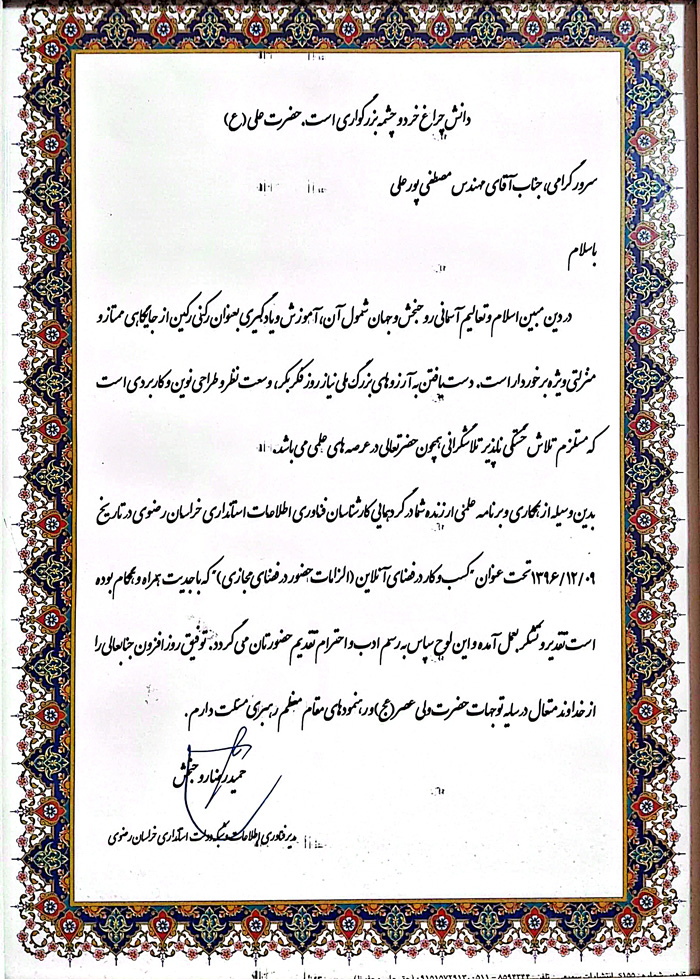 دانش چراغ خرد و چشمه بزرگواری است. حضرت علی (ع)
سرور گرامی، جناب آقای مهندس مصطفی پورعلی
باسلام
در دین مبین اسلام و تعالیم آسمانی روحبخش و جهان شمول آن، آموزش و یادگیری بعنوان رکنی رکین از جایگاهی ممتاز و
منزلتی ویژه برخوردار است. دست یافتن به آرزوهای بزرگ ملی نیاز روز فکر بکر، وسعت نظر و طراحی نوین و کاربردی است
که مستلزم تلاش خستگی ناپذیر تلاشگرانی همچون حضرتعالی در عرصه های علمی می باشد.
بدین وسیله از همکاری و برنامه علمی ارزنده شما در گردهمایی کارشناسان فناوری اطلاعات استانداری خراسان رضوی در تاریخ
۱۳۹۶/۱۲/۰۹ تحت عنوان "کسب و کار در فضای آنلاین (الزامات حضور در فضای مجازی)" که با جدیت همراه و بهگام بوده
است تقدیر و تشکر بعمل آمده و این لوح سپاس به رسم ادب و احترام تقدیم حضورتان می گردد. توفیق روز افزون جنابعالی را
از خداوند متعال در سایه توجهات حضرت ولی عصر (عج) و رهنمودهای مقام معظم رهبری مسئلت دارم.
حمیدرضا روحبخش
مدیر فناوری اطلاعات و شبکه دولت استانداری خراسان رضوی